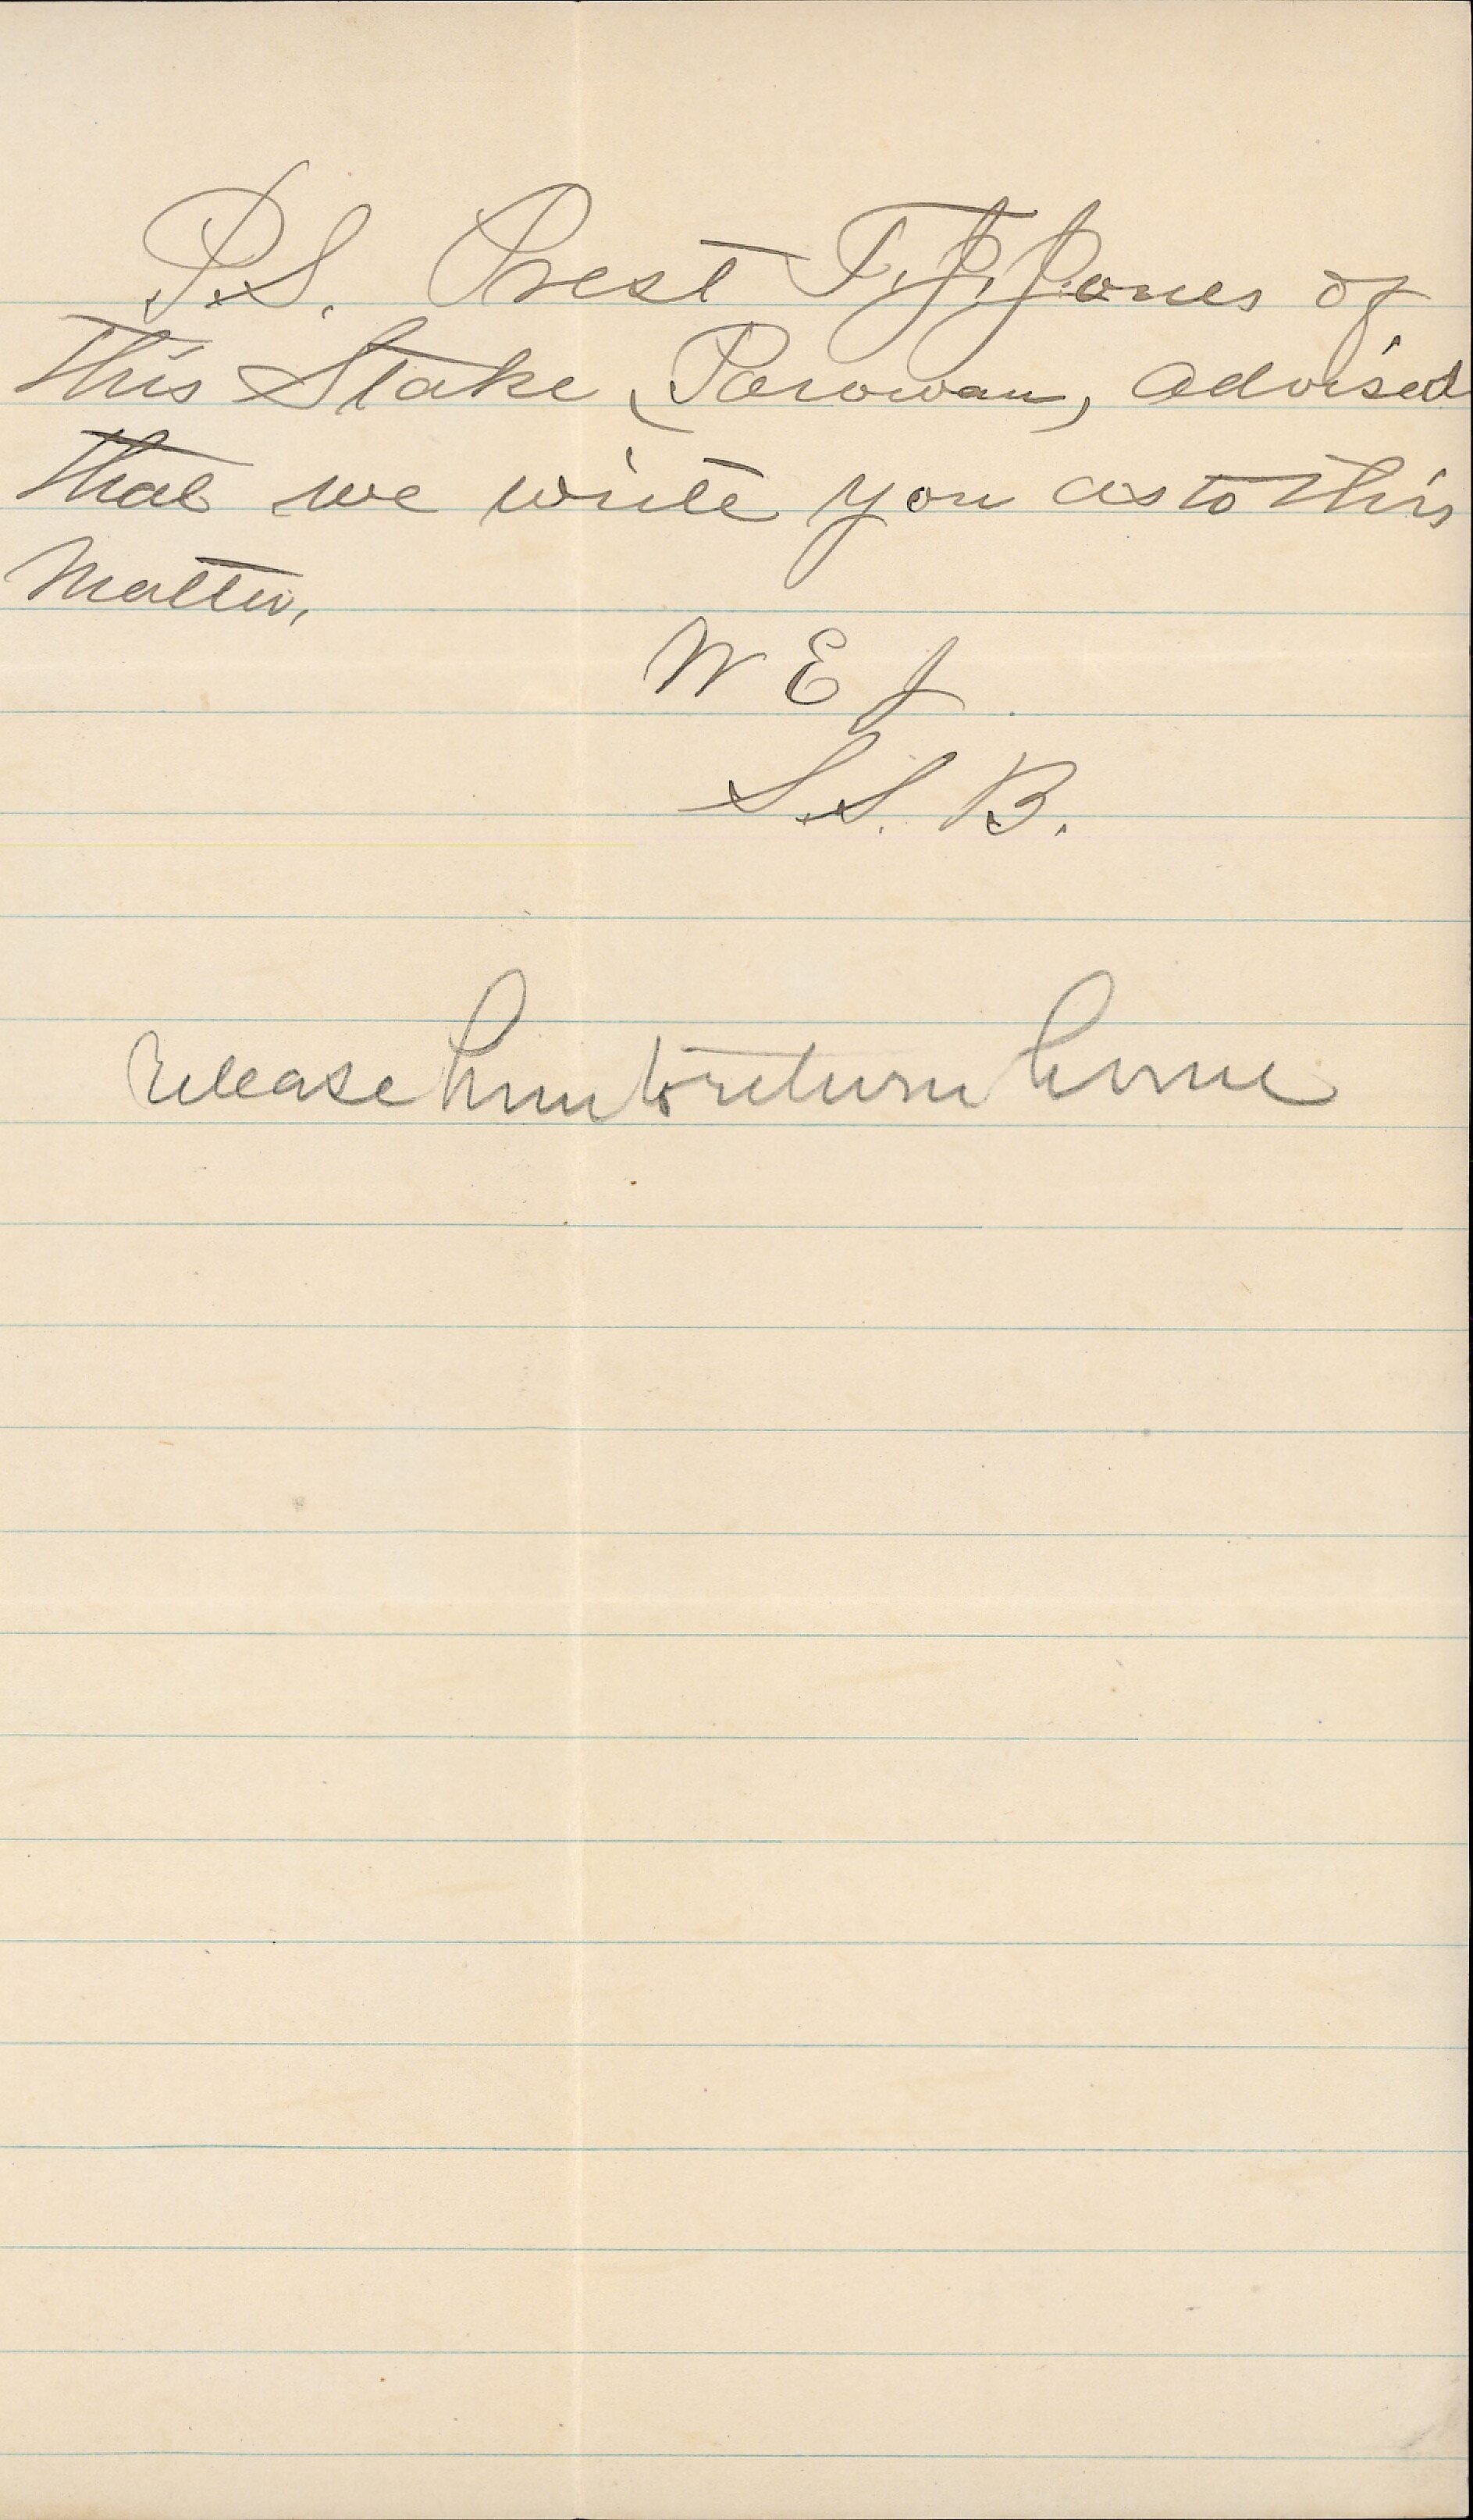 P.S. Prest T. J. Jones of
this Stake (Parowan) advised
that we write you as to this
Matter,
W E J
S. S. B.
release him to return home